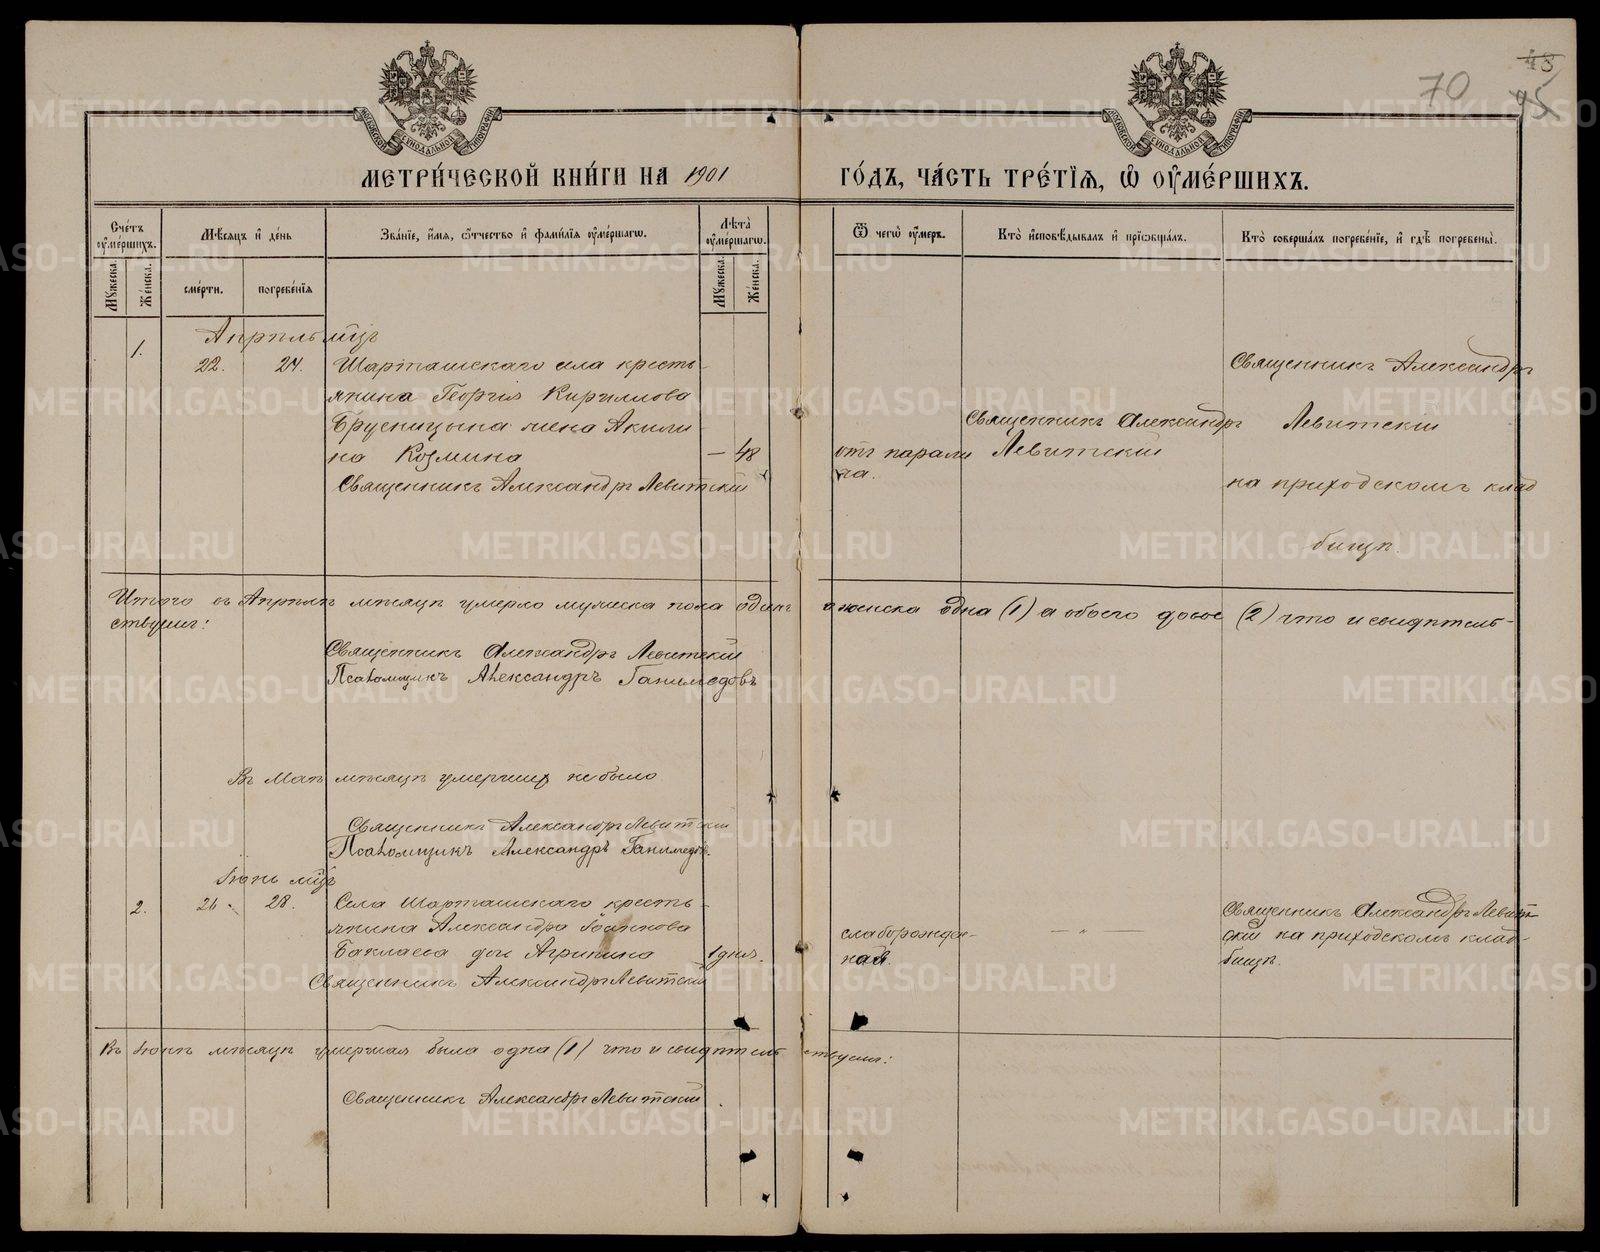 70
45
МЕТРИ́ЧЕСКОЙ КНИ́ГИ НА 1901
ГО́ДЪ, ЧА́СТЬ ТРЕ́ТІѦ, Ѡ҆ ОУ҆МЕ́РШИХЪ.
Сче́тъ оу҆ме́ршихъ.
Мꙋжеска.
Же́нска.
Мѣ́сѧцъ и҆ де́нь
сме́рти.
погребе́нїѧ
Зва́нїе, и҆́мѧ, ѻ҆́тчество и҆ фами́лїѧ оу҆ме́ршагѡ.
Лѣ́та оу҆ме́ршагѡ.
Мꙋжеска.
Же́нска.
Ѿ чегѡ̀ оу҆́меръ.
Кто̀ и҆сповѣ́дывалъ и҆ прїѡбща́лъ.
Кто̀ соверша́лъ погребе́нїе, и҆ гдѣ̀ погребены̀.
Апрѣль мцъ
1. 22. 24. Шарташскаго села кресть-
янина Георгія Кириллова
Брусницына жена Акили-
на Козмина — 48
Священникъ Александръ Левитскій
отъ парали
ча.
Священникъ Александръ
Левитскій
Священникъ Александръ
Левитскій
на приходскомъ клад
бищѣ.
Итого въ Апрѣлѣ мѣсяцѣ умерло мужеска пола одинъ а женска одна (1) а обоего двое (2) что и свидѣтель-
ствуемъ:
Священникъ Александръ Левитскій
Псаломщикъ Александръ Ганимедовъ
Въ Маѣ мѣсяцѣ умершихъ не было
Священникъ Александръ Левитскій
Псаломщикъ Александръ Ганимедовъ.
Іюнь мцъ
2. 26. 28. Села Шарташскаго кресть-
янина Александра
Баклаева дочь Агрипина 1 дня.
Священникъ Александръ Левитскій
слаборожден-
ная.
— „ —
Священникъ Александръ Левит-
скій на приходскомъ клад-
бищѣ.
Въ Іюнѣ мѣсяцѣ умершая была одна (1) что и свидѣтельствуемъ:
Священникъ Александръ Левитскій
METRIKI.GASO-URAL.RU